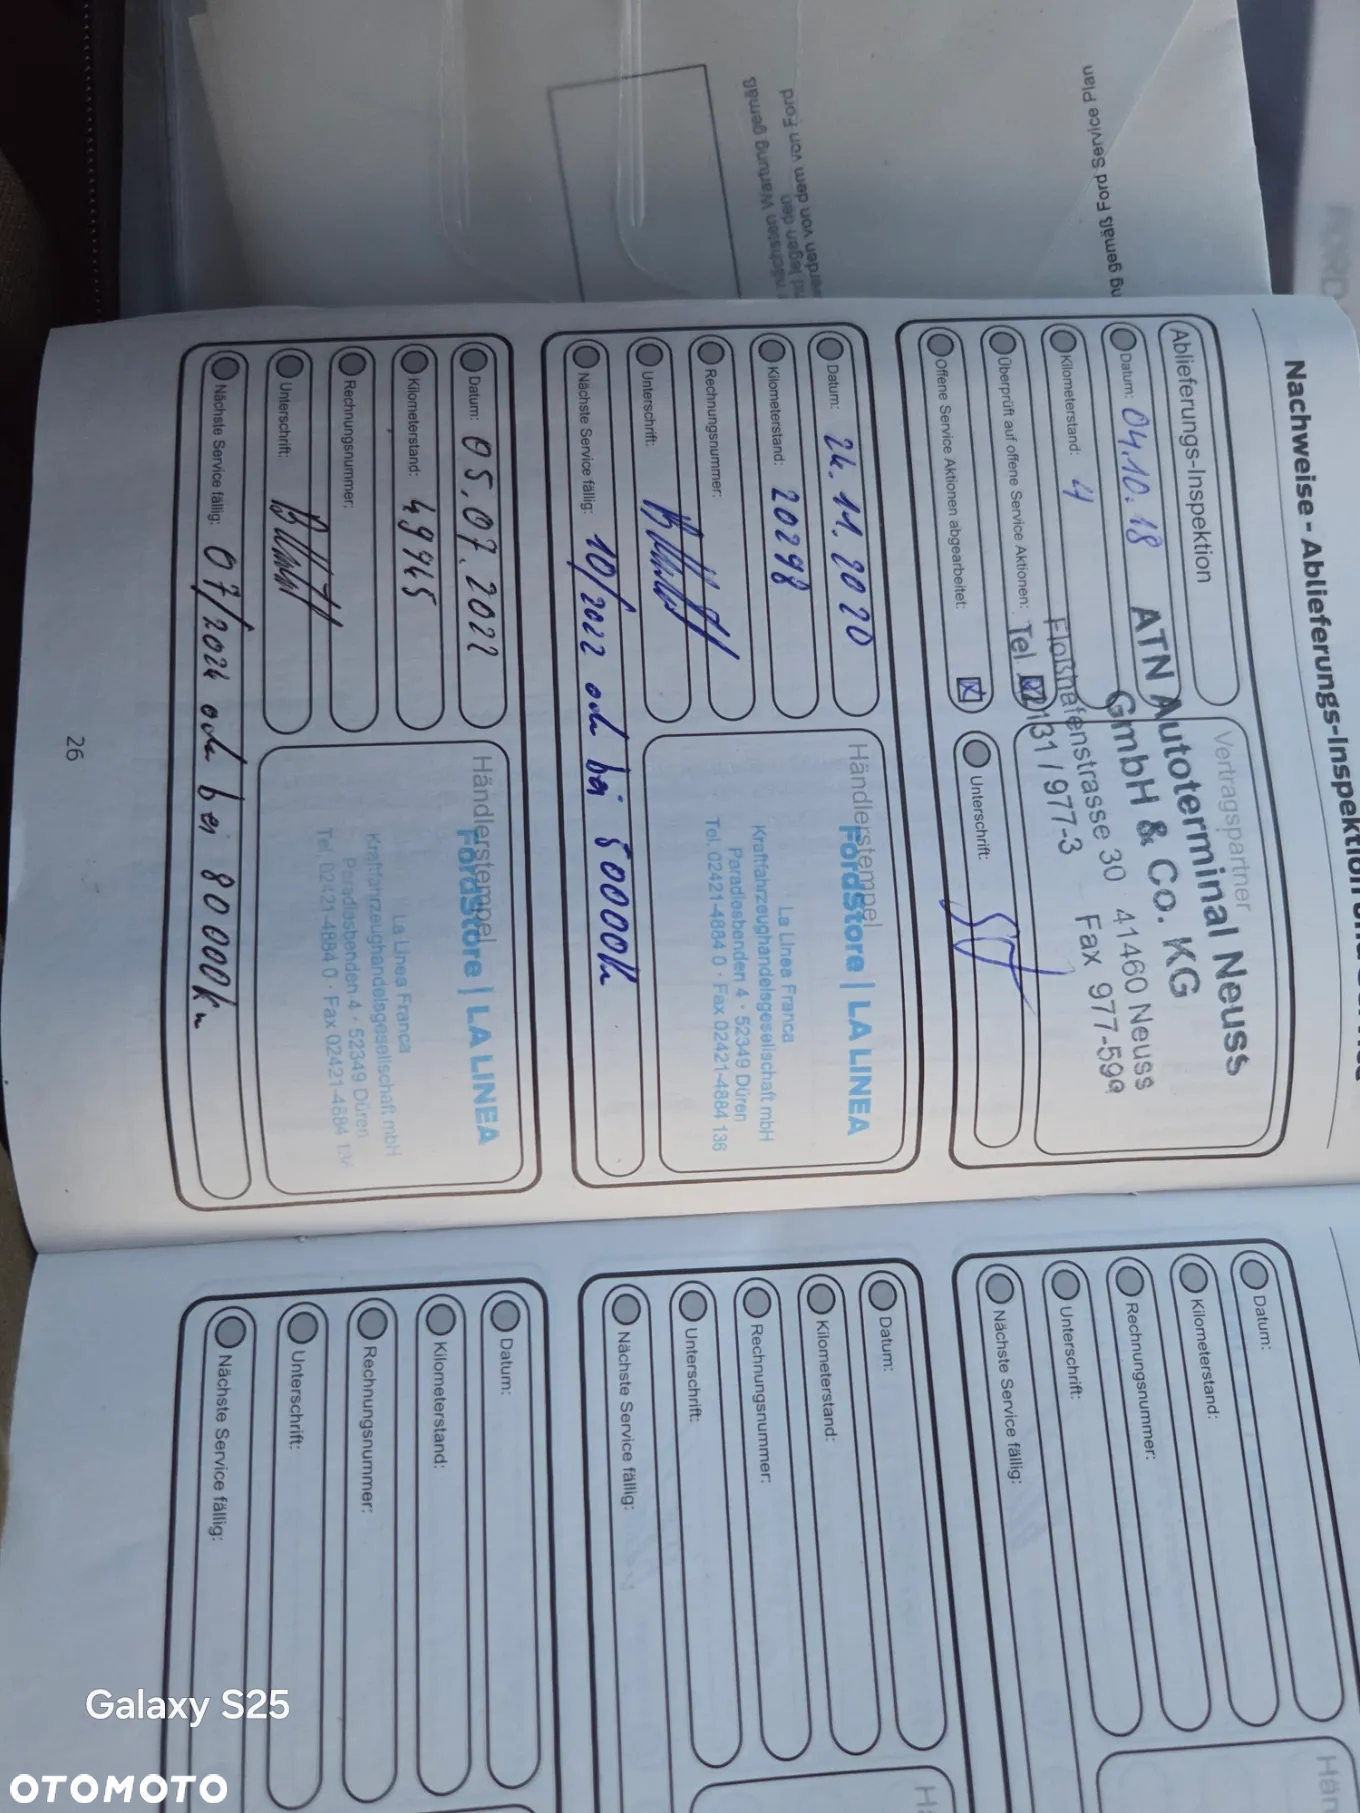 Nachweise - Ablieferungs-Inspektion und
Ablieferungs-Inspektion
Vertragspartner
Datum: 04.10.18
Kilometerstand: 4
Überprüft auf offene Service Aktionen:
Offene Service Aktionen abgearbeitet:
Unterschrift:
ATN Autoterminal Neuss
GmbH & Co. KG
Floßhafenstrasse 30 41460 Neuss
Tel. 02131 / 977-3 Fax 977-599
Datum: 24.11.2020
Kilometerstand: 20298
Rechnungsnummer:
Unterschrift:
Nächste Service fällig: 10/2022 oder bei 50000km
Händlerstempel
FordStore | LA LINEA
La Linea Franca
Kraftfahrzeughandelsgesellschaft mbH
Paradiesbenden 4 · 52349 Düren
Tel. 02421-4884 0 · Fax 02421-4884 136
Datum: 05.07.2022
Kilometerstand: 49945
Rechnungsnummer:
Unterschrift:
Nächste Service fällig: 07/2024 oder bei 80000km
Händlerstempel
FordStore | LA LINEA
La Linea Franca
Kraftfahrzeughandelsgesellschaft mbH
Paradiesbenden 4 · 52349 Düren
Tel. 02421-4884 0 · Fax 02421-4884 136
26
Datum:
Kilometerstand:
Rechnungsnummer:
Unterschrift:
Nächste Service fällig:
Datum:
Kilometerstand:
Rechnungsnummer:
Unterschrift:
Nächste Service fällig:
Datum:
Kilometerstand:
Rechnungsnummer:
Unterschrift:
Nächste Service fällig:
gemäß Ford Service Plan
nächsten Wartung gemäß
legen den
werden von dem von Ford
FORD
Galaxy S25
OTOMOTO